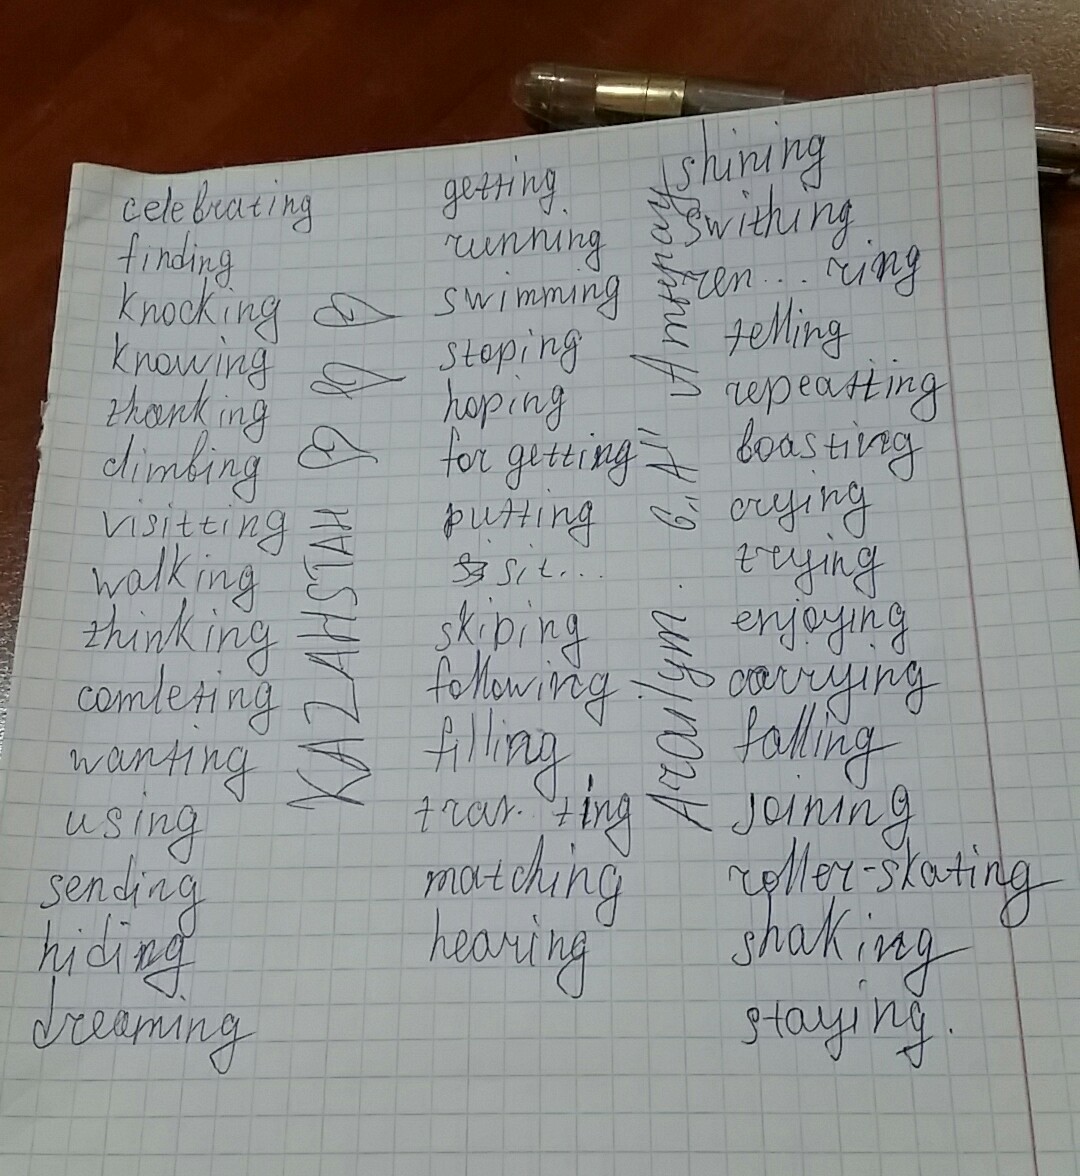 celebrating
finding
knocking
knowing
thanking
climbing
visitting
walking
thinking
comleting
wanting
using
sending
hiding
dreaming
KAZAHSTAH
getting
running
swimming
stoping
hoping
for getting
putting
sit...
skiping
following
filling
trar. ting
matching
hearing
Arailym. 6 "A" Amtynay
shining
swithing
ren... ring
telling
repeatting
boasting
crying
trying
enjoying
carrying
falling
joining
roller-skating
shaking
staying.